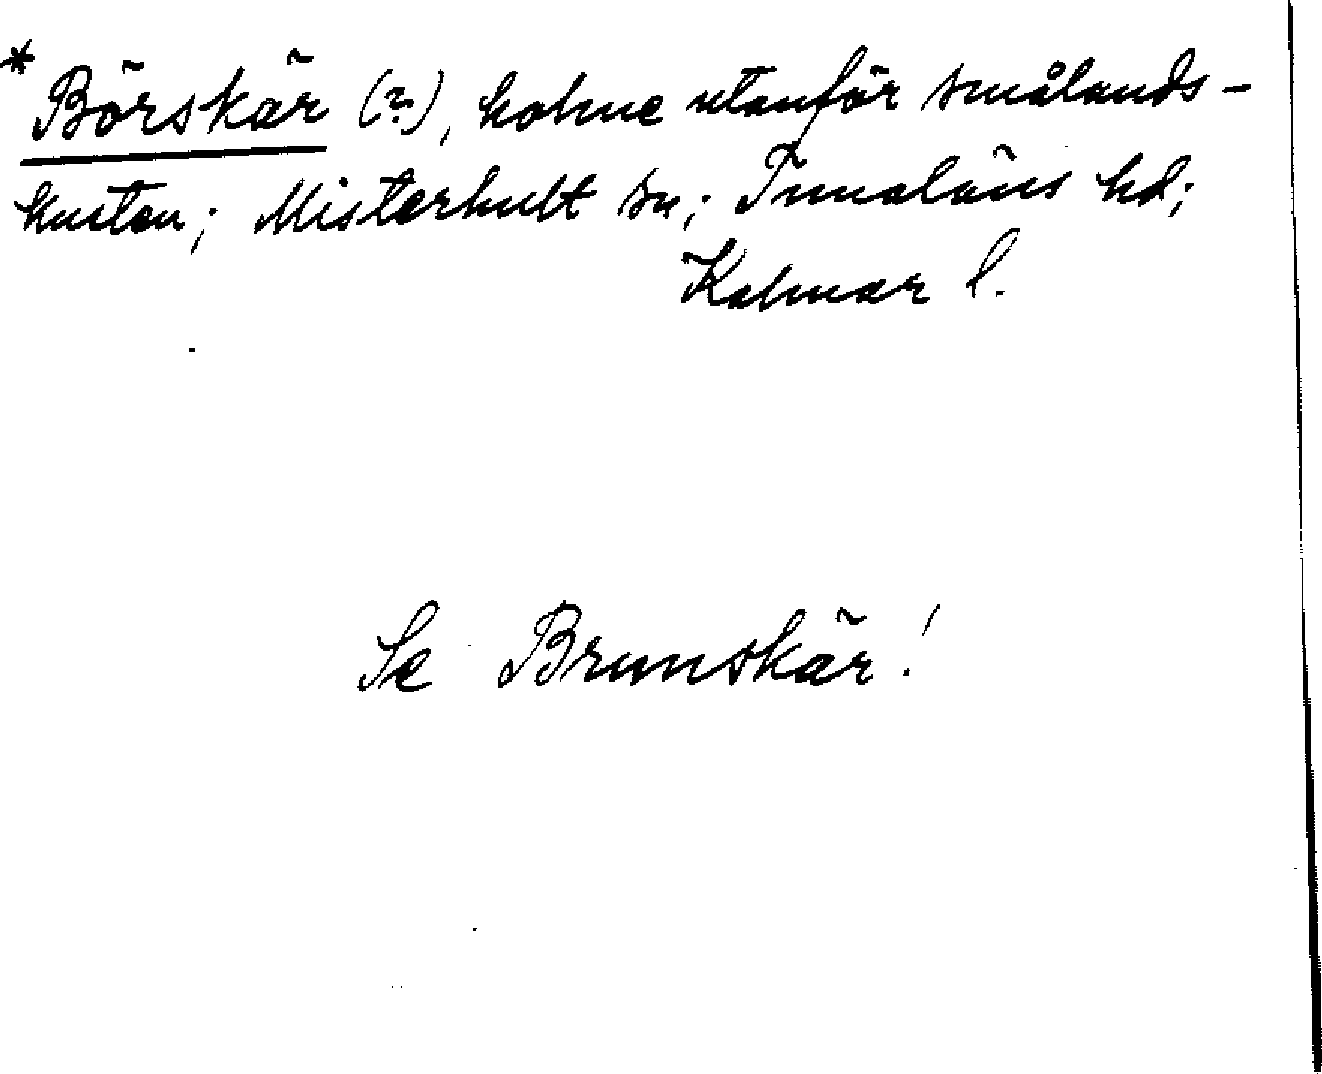 * Börskär (?), holme utanför smålands-
kusten; Misterhult sn; Tunaläns hd;
Kalmar l.
Se Brunskär!